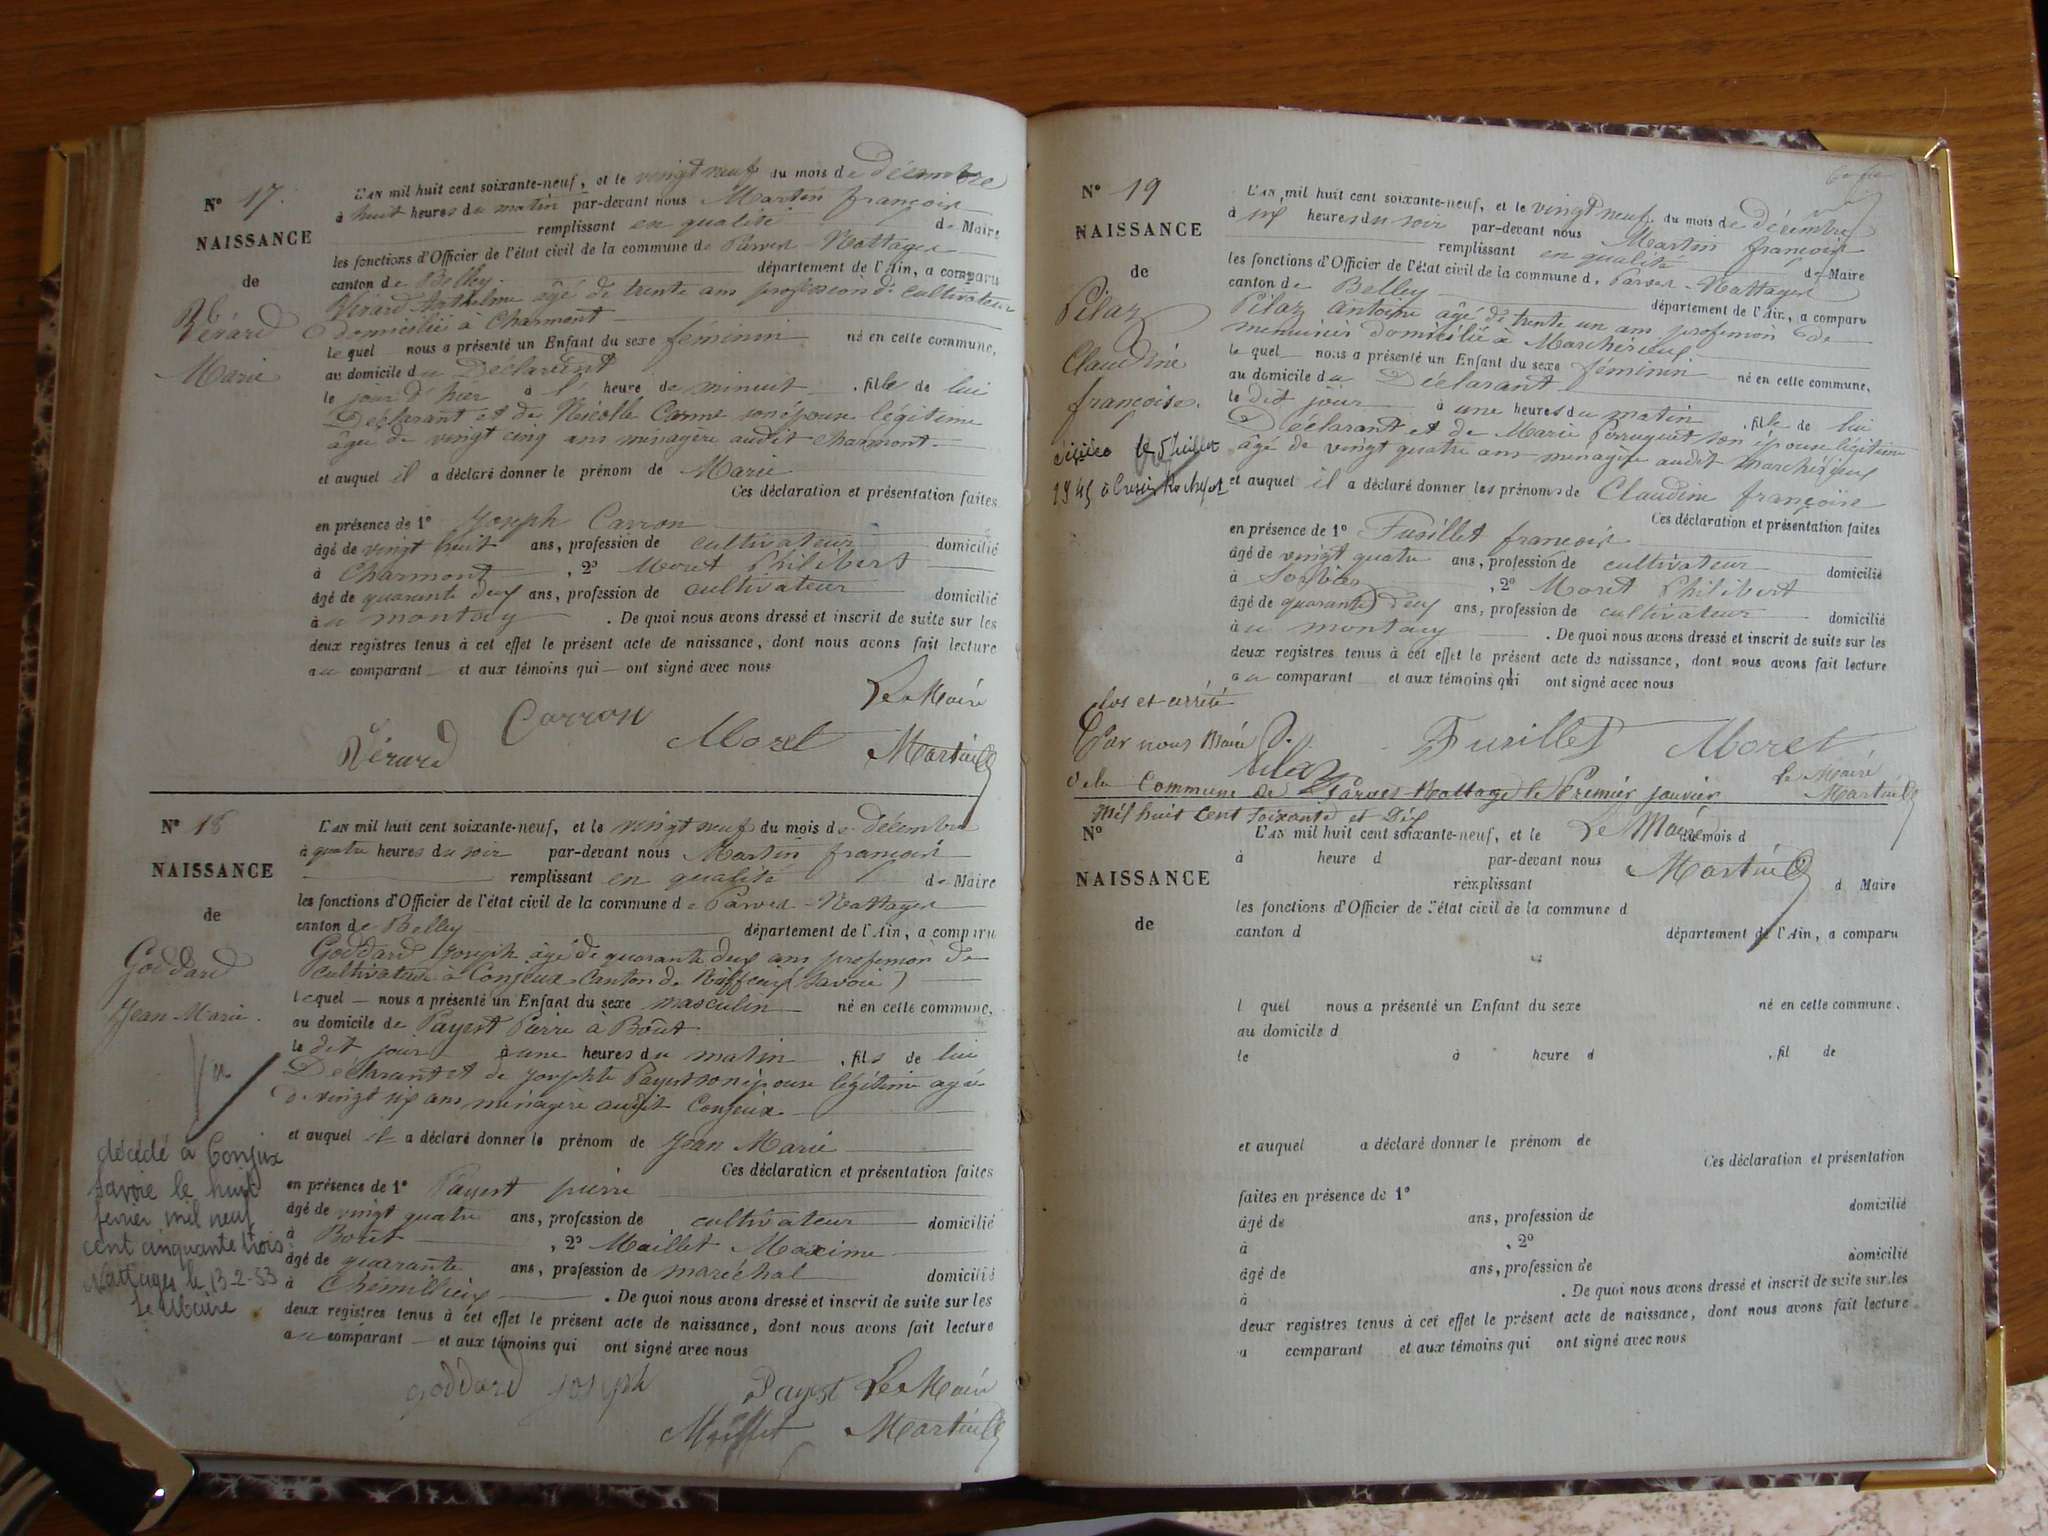 N° 17.
NAISSANCE
de
Vérard
Marie
L'AN mil huit cent soixante-neuf, et le vingt neuf du mois de décembre
à huit heures du matin par-devant nous Martin françois
remplissant en qualité de Maire
les fonctions d'Officier de l'état civil de la commune de Parves-Nattages
canton de Belley département de l'Ain, a comparu
Vérard Anthelme âgé de trente ans profession de cultivateur
domicilié à Charmont
lequel nous a présenté un Enfant du sexe féminin né en cette commune,
au domicile du Déclarant
le jour d'hier à l' heure de minuit, fille de lui
Déclarant et de son épouse légitime
âgée de vingt cinq ans ménagère audit Charmont
et auquel il a déclaré donner le prénom de Marie
Ces déclaration et présentation faites
en présence de 1° Joseph Carron
âgé de vingt huit ans, profession de cultivateur domicilié
à Charmont, 2° Moret Philibert
âgé de quarante deux ans, profession de cultivateur domicilié
à u montay. De quoi nous avons dressé et inscrit de suite sur les
deux registres tenus à cet effet le présent acte de naissance, dont nous avons fait lecture
au comparant et aux témoins qui ont signé avec nous
Le Maire
Vérard Carron Moret Martin
N° 18
NAISSANCE
de
Goddard
Jean Marie.
décédé à Conjux
Savoie le huit
février mil neuf
cent cinquante trois
Nattages le 13-2-53
Le Maire
L'AN mil huit cent soixante-neuf, et le vingt neuf du mois de décembre
à quatre heures du soir par-devant nous Martin françois
remplissant en qualité de Maire
les fonctions d'Officier de l'état civil de la commune de Parves-Nattages
canton de Belley département de l'Ain, a comparu
Goddard Joseph âgé de quarante deux ans profession de
cultivateur à Conjeux Canton de Ruffieux (Savoie)
lequel nous a présenté un Enfant du sexe masculin né en cette commune,
au domicile de Payest Pierre à Boût
le dit jour à une heures du matin, fils de lui
Déclarant et de Josephte Payest son épouse légitime agée
de vingt six ans ménagère audit Conjeux
et auquel il a déclaré donner le prénom de Jean Marie
Ces déclaration et présentation faites
en présence de 1° Payest pierre
âgé de vingt quatre ans, profession de cultivateur domicilié
à Boût, 2° Maillet Maxime
âgé de quarante ans, profession de maréchal domicilié
à Chemillieu. De quoi nous avons dressé et inscrit de suite sur les
deux registres tenus à cet effet le présent acte de naissance, dont nous avons fait lecture
au comparant et aux témoins qui ont signé avec nous
goddard joseph Payest Le Maire
Maillet Martin
N° 19
NAISSANCE
de
Pilaz
Claudine
françoise.
décédée le 5 juillet
1945 à
L'AN mil huit cent soixante-neuf, et le vingt neuf du mois de décembre
à six heures du soir par-devant nous Martin françois
remplissant en qualité de Maire
les fonctions d'Officier de l'état civil de la commune de Parves-Nattages
canton de Belley département de l'Ain, a comparu
Pilaz Antoine âgé de trente un ans profession de
menuisier domicilié à Marchérieux
lequel nous a présenté un Enfant du sexe féminin né en cette commune,
au domicile du Déclarant
le dit jour à une heures du matin, fille de lui
Déclarant et de Marie Perruquet son épouse légitime
âgé de vingt quatre ans ménagère audit Marchérieux
et auquel il a déclaré donner les prénoms de Claudine françoise
Ces déclaration et présentation faites
en présence de 1° Fusillet françois
âgé de vingt quatre ans, profession de cultivateur domicilié
à Sorbier, 2° Moret Philibert
âgé de quarante deux ans, profession de cultivateur domicilié
à u montay. De quoi nous avons dressé et inscrit de suite sur les
deux registres tenus à cet effet le présent acte de naissance, dont nous avons fait lecture
au comparant et aux témoins qui ont signé avec nous
Clos et arrêté
Par nous Maire
Pilaz Fusillet Moret
Le Maire
Martin
de la Commune de Parves Nattage le Premier janvier
Mil huit Cent Soixante et Dix
Le Maire
Martin
N°
NAISSANCE
de
L'AN mil huit cent soixante-neuf, et le du mois d
à heure d par-devant nous
remplissant d Maire
les fonctions d'Officier de l'état civil de la commune d
canton d département de l'Ain, a comparu
l quel nous a présenté un Enfant du sexe né en cette commune.
au domicile d
le à heure d, fil de
et auquel a déclaré donner le prénom de
Ces déclaration et présentation
faites en présence de 1°
âgé de ans, profession de domicilié
à, 2°
âgé de ans, profession de domicilié
à. De quoi nous avons dressé et inscrit de suite sur les
deux registres tenus à cet effet le présent acte de naissance, dont nous avons fait lecture
a comparant et aux témoins qui ont signé avec nous